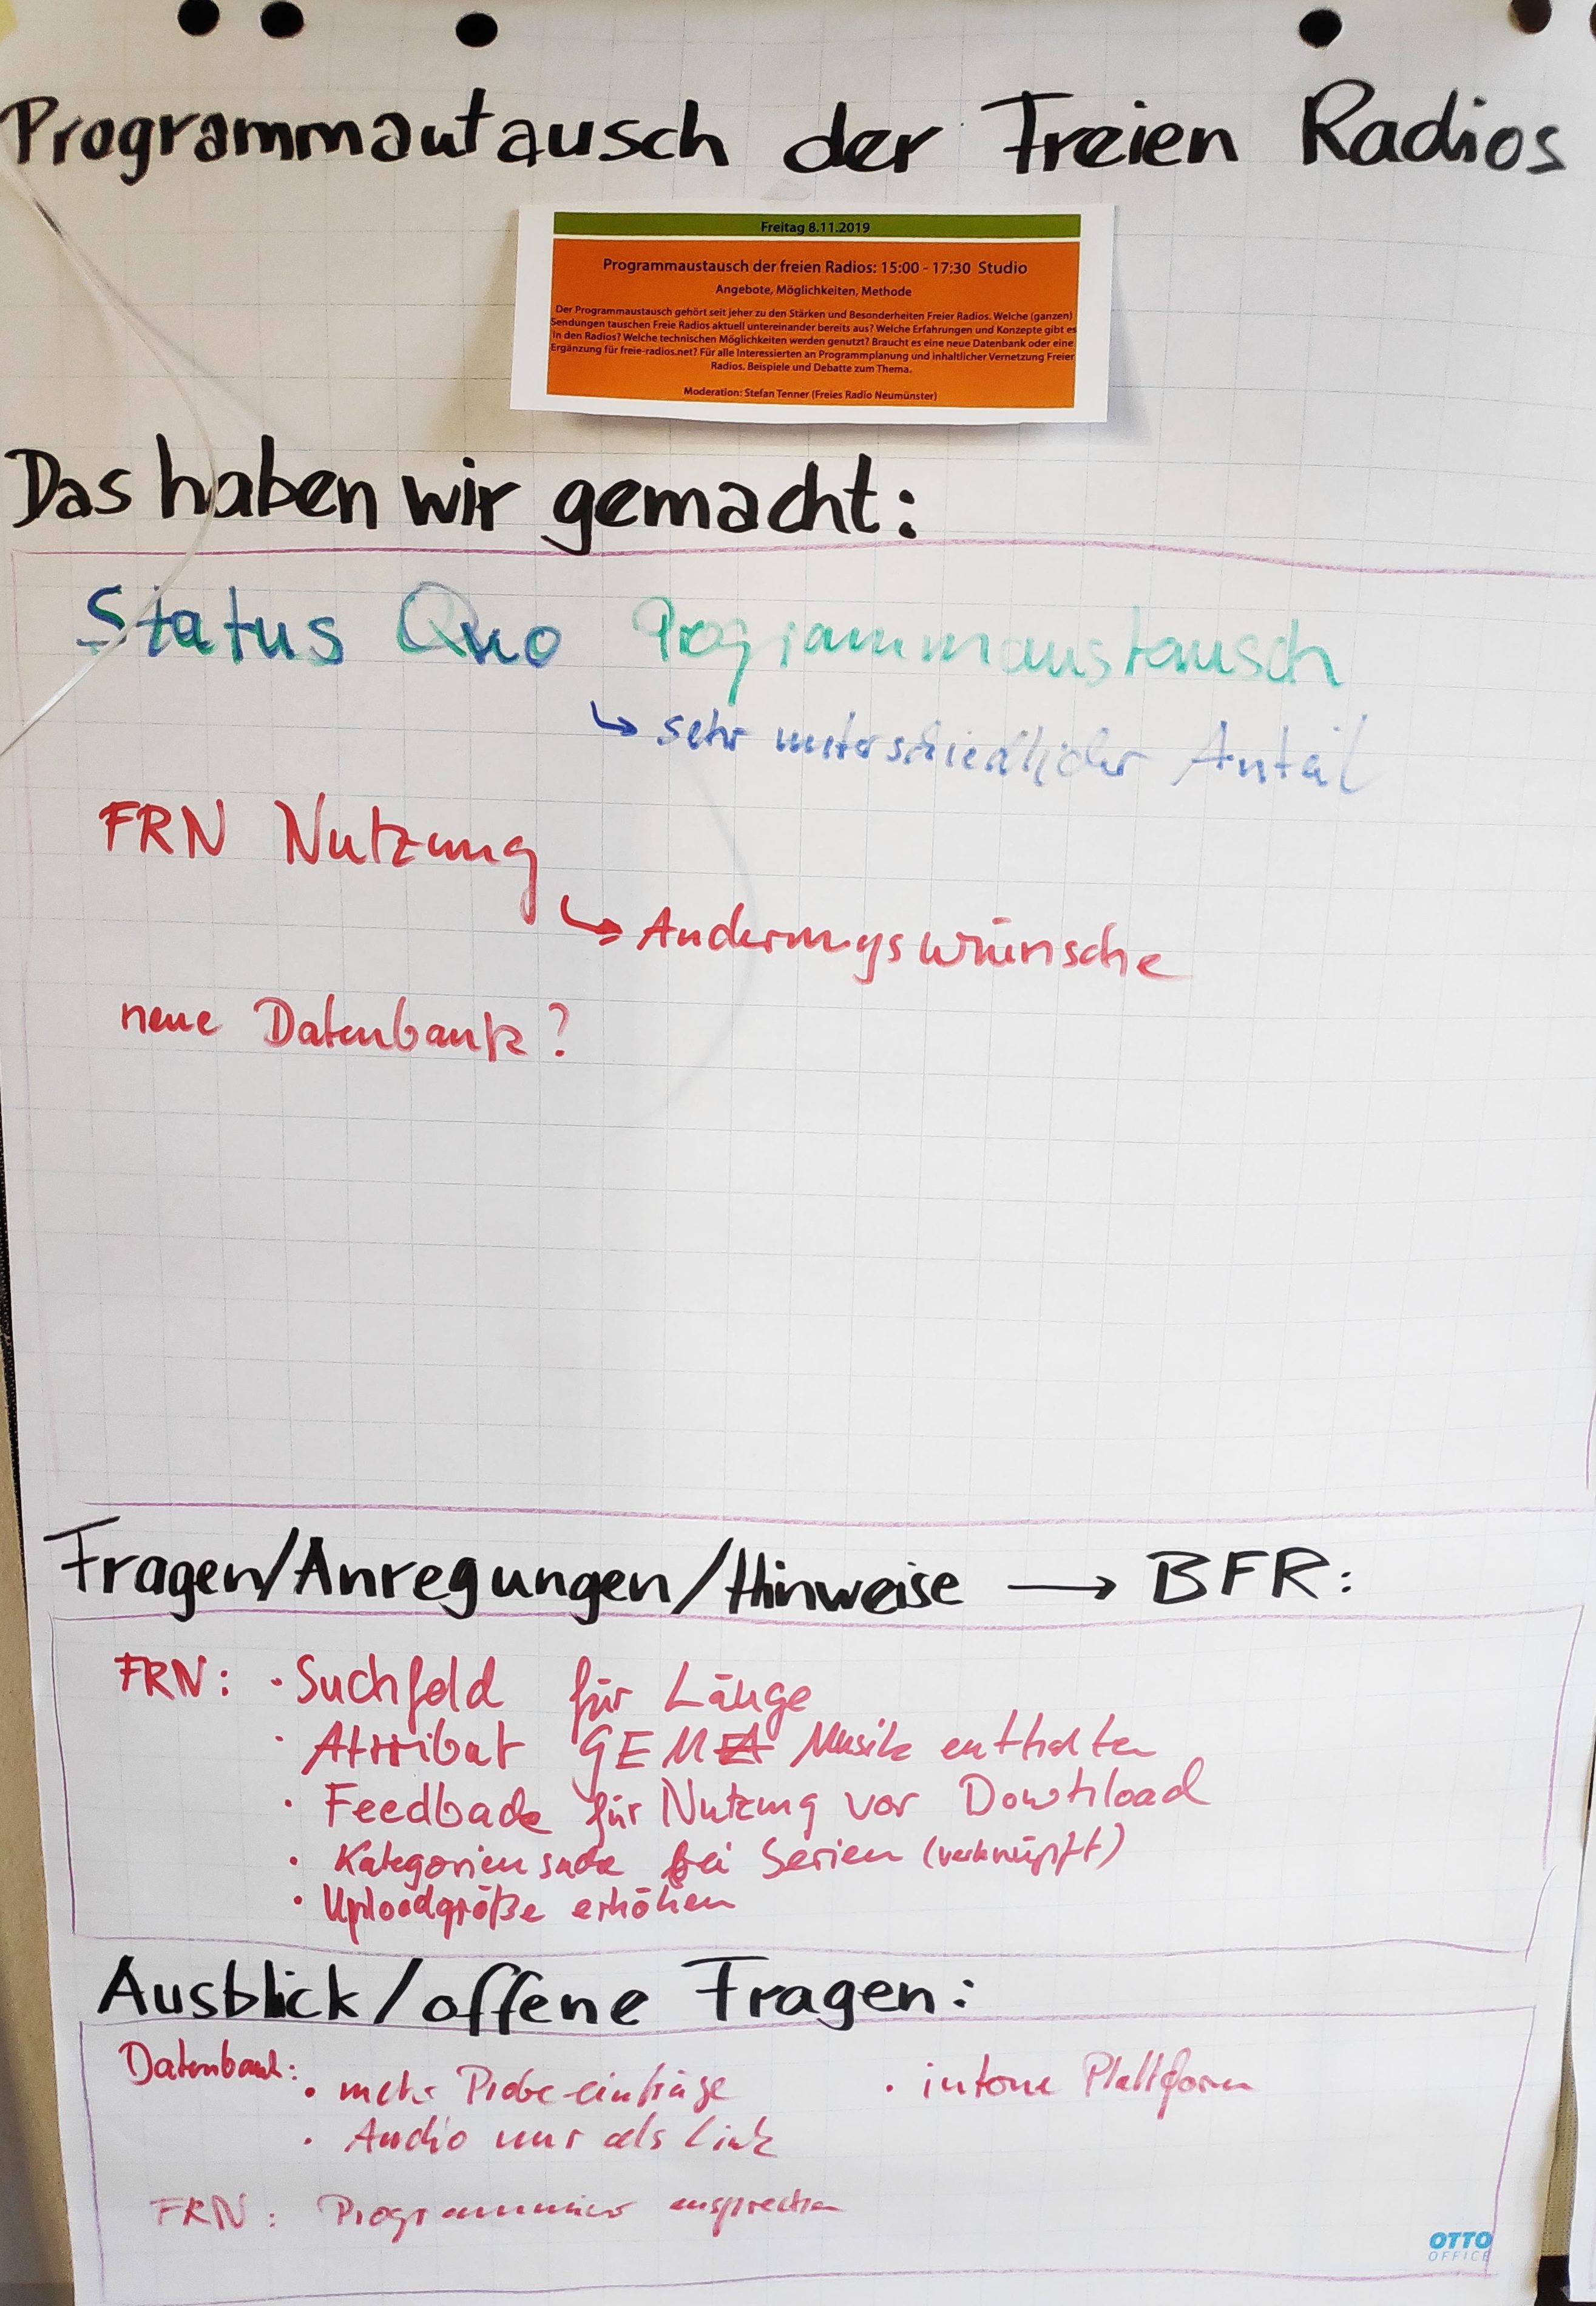 Programmautausch der Freien Radios
Freitag 8.11.2019
Programmaustausch der freien Radios: 15:00 - 17:30 Studio
Angebote, Möglichkeiten, Methode
Der Programmaustausch gehört seit jeher zu den Stärken und Besonderheiten Freier Radios. Welche (ganzen)
Sendungen tauschen Freie Radios aktuell untereinander bereits aus? Welche Erfahrungen und Konzepte gibt es
in den Radios? Welche technischen Möglichkeiten werden genutzt? Braucht es eine neue Datenbank oder eine
Ergänzung für freie-radios.net? Für alle Interessierten an Programmplanung und inhaltlicher Vernetzung Freier
Radios. Beispiele und Debatte zum Thema.
Moderation: Stefan Tenner (Freies Radio Neumünster)
Das haben wir gemacht:
Status Quo Programmaustausch
↳ sehr unterschiedlicher Anteil
FRN Nutzung
↳ Änderungswünsche
neue Datenbank?
Fragen/Anregungen/Hinweise → BFR:
FRN: · Suchfeld für Länge
· Attribut GEMA Musik enthalten
· Feedback für Nutzung vor Download
· Kategoriensuche bei Serien (verknüpft)
· Uploadgröße erhöhen
Ausblick/offene Fragen:
Datenbank: · mehr Probe-einträge · interne Plattform
· Audio nur als Link
FRN: Programmierer ansprechen
OTTO
OFFICE